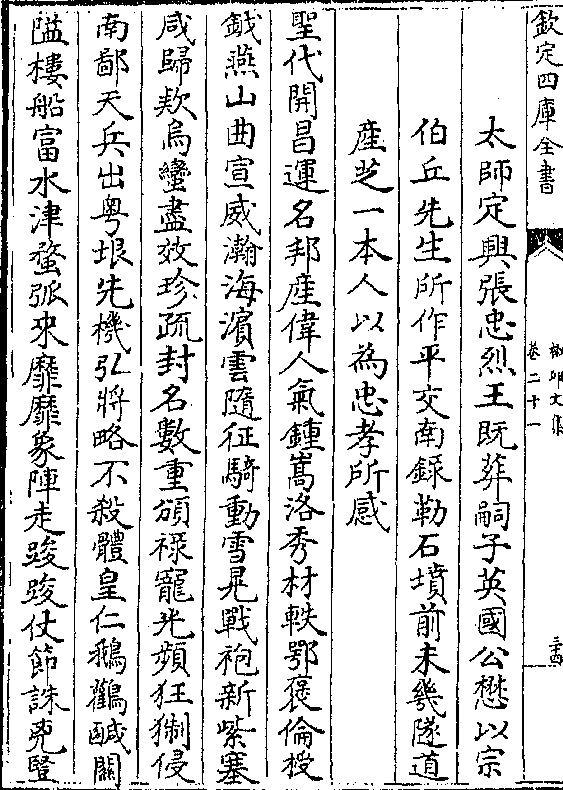 欽定四庫全書
卷二十一
三十四
太師定興張忠烈王既葬嗣子英國公懋以宗
伯丘先生所作平交南錄勒石墳前未幾隧道
産芝一本人以為忠孝所感
聖代開昌運名邦産偉人氣鍾嵩洛秀材軼鄂褒倫授
鉞燕山曲宣威瀚海濱雲隨征騎動雪晃戰袍新紫塞
咸歸欵烏蠻盡效珍疏封名數重頒禄寵光頻狂猘侵
南鄙天兵出粤垠先機弘將略不殺體皇仁鵝鸛鹹關
隘樓船富水津蝥弧來靡靡象陣走踆踆仗節誅兇豎